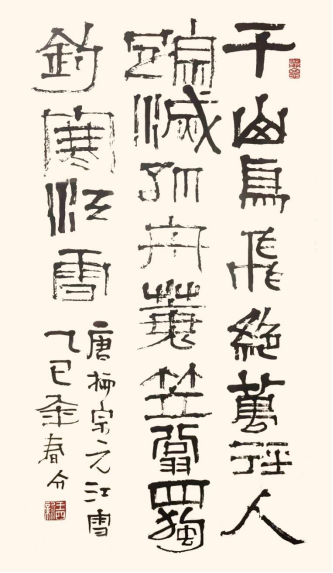 千山鳥飛絕萬徑人
踪滅孤舟蓑笠翁獨
釣寒江雪
唐柳宗元江雪
乙巳年春分